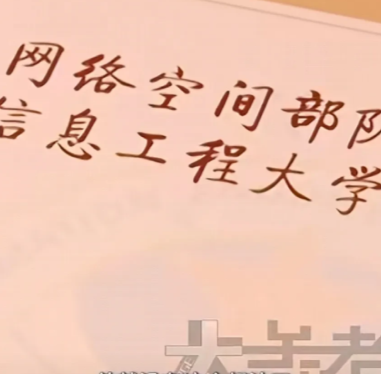 网络空间部队
信息工程大学